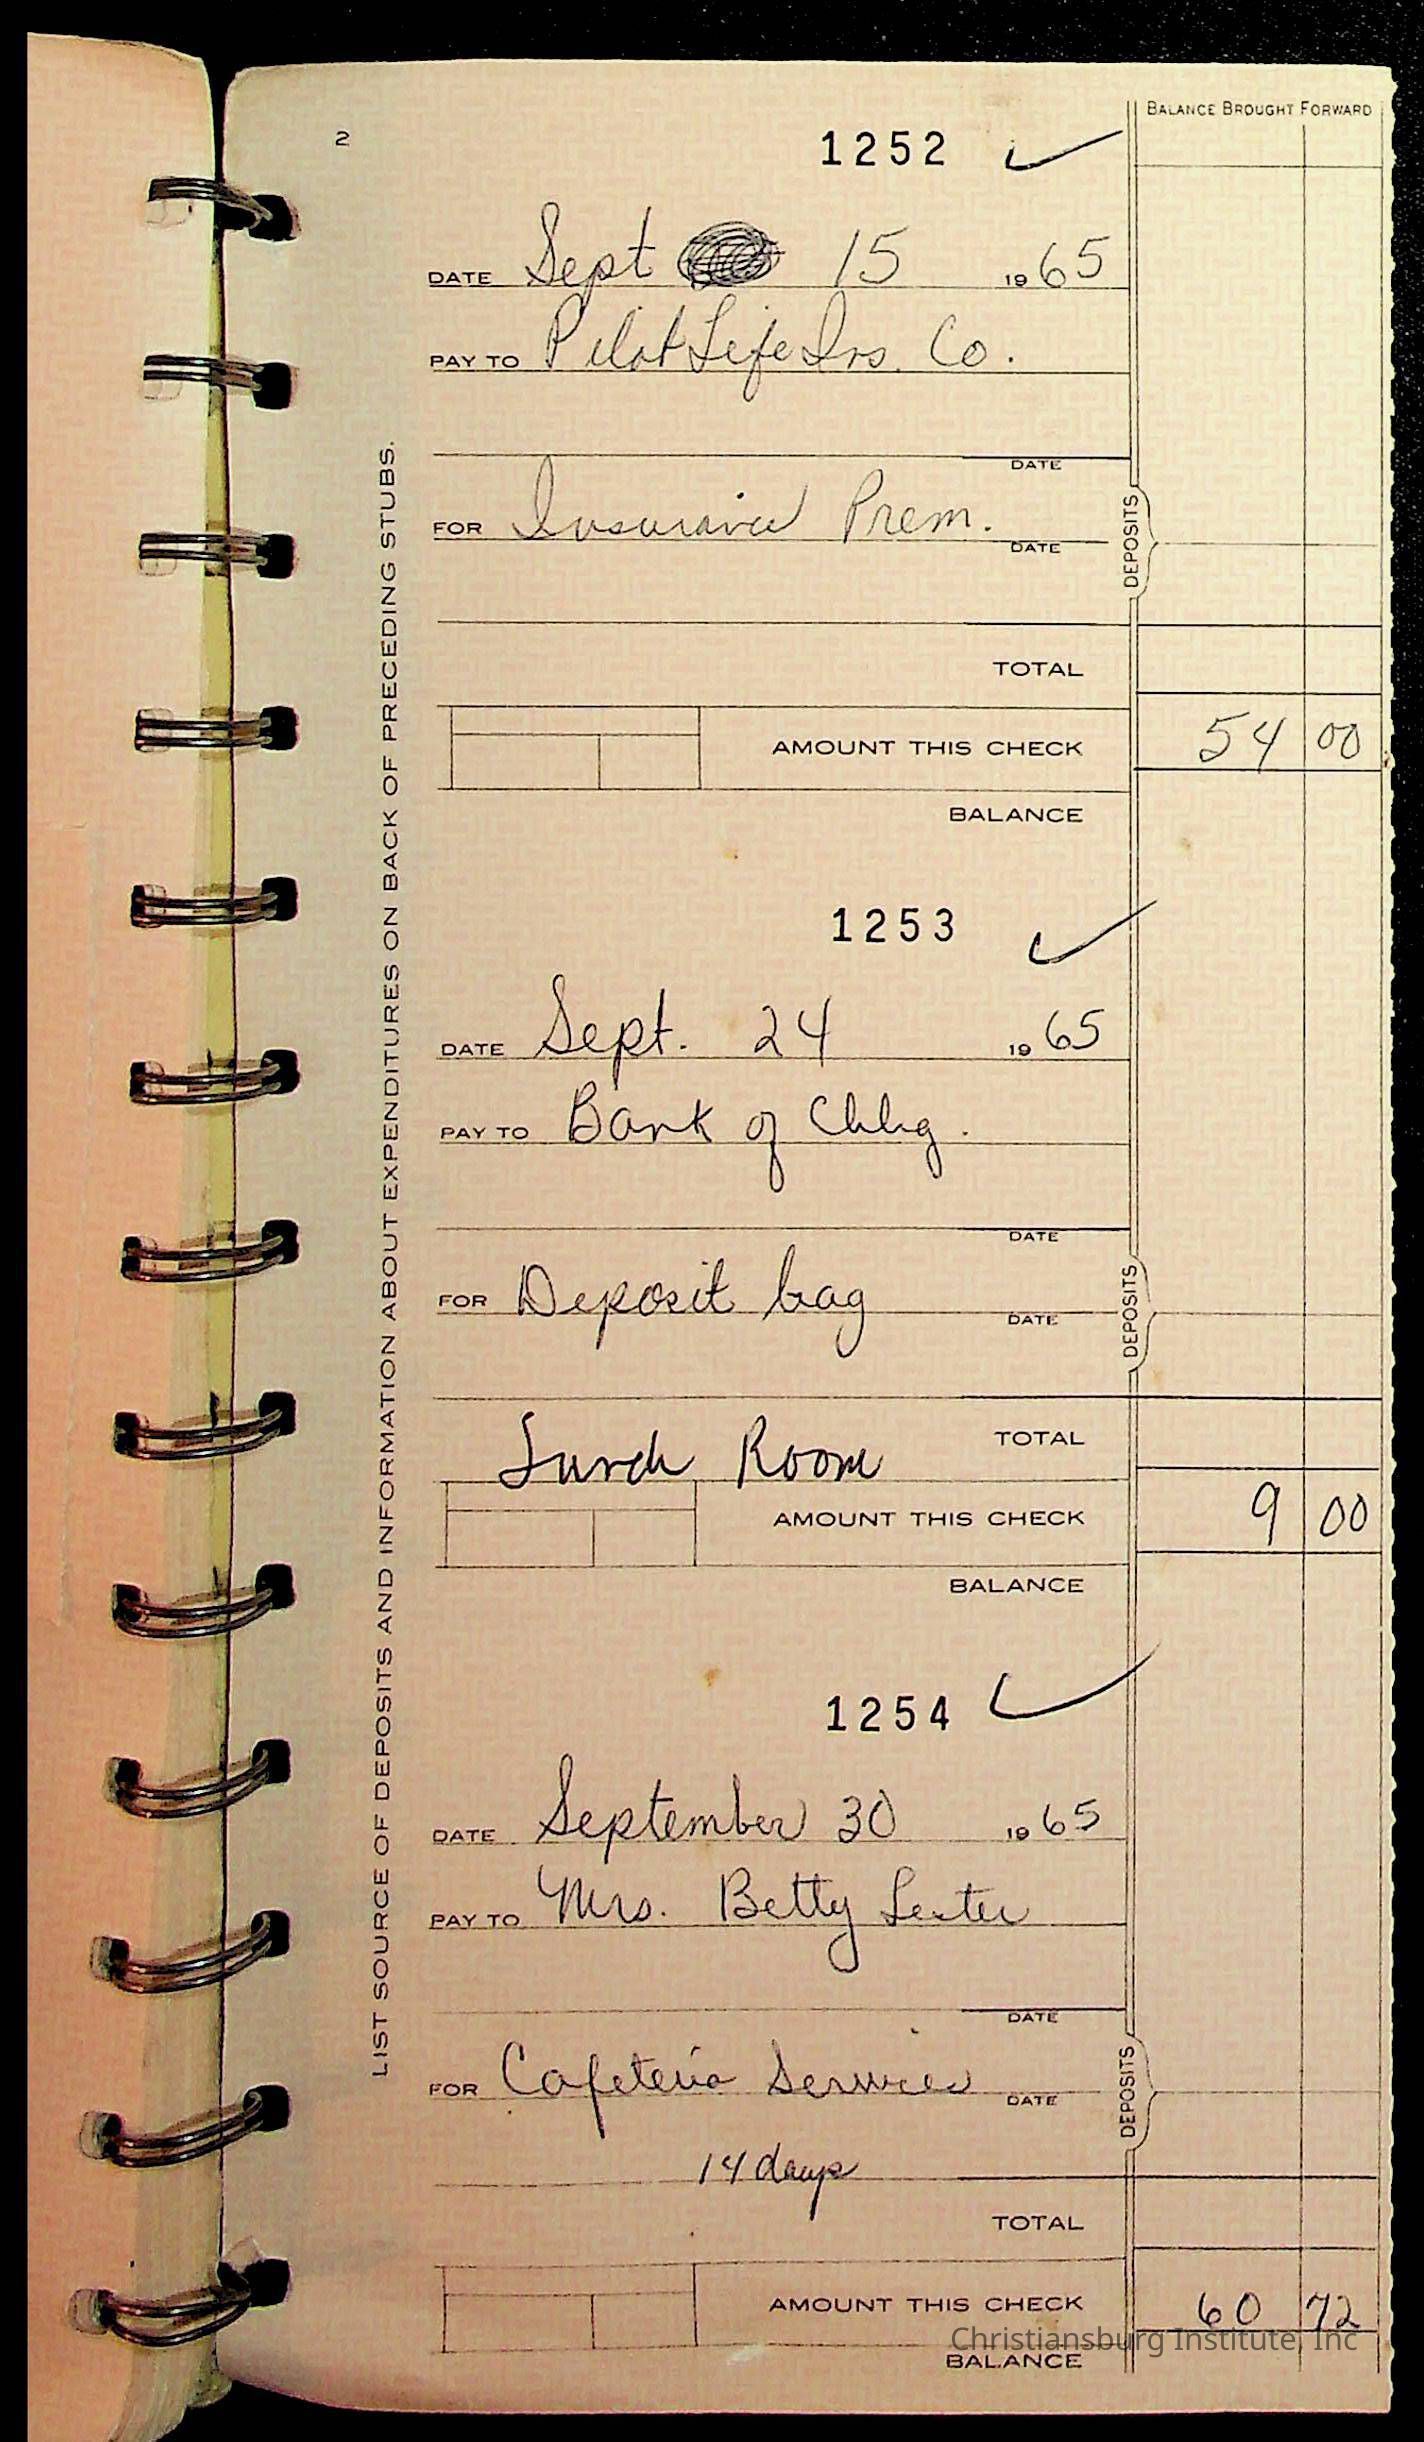 2
BALANCE BROUGHT FORWARD
1252 ✓
DATE Sept 15 1965
PAY TO Pilot Life Ins. Co.
DATE
FOR Insurance Prem.
DATE
DEPOSITS
TOTAL
AMOUNT THIS CHECK 54 00
BALANCE
1253 ✓
DATE Sept. 24 1965
PAY TO Bank of Chbg.
DATE
FOR Deposit bag
DATE
DEPOSITS
Lunch Room TOTAL
AMOUNT THIS CHECK 9 00
BALANCE
1254 ✓
DATE September 30 1965
PAY TO Mrs. Betty Lester
DATE
FOR Cafeteria Services
DATE
DEPOSITS
14 days
TOTAL
AMOUNT THIS CHECK 60 72
BALANCE
LIST SOURCE OF DEPOSITS AND INFORMATION ABOUT EXPENDITURES ON BACK OF PRECEDING STUBS.
Christiansburg Institute, Inc